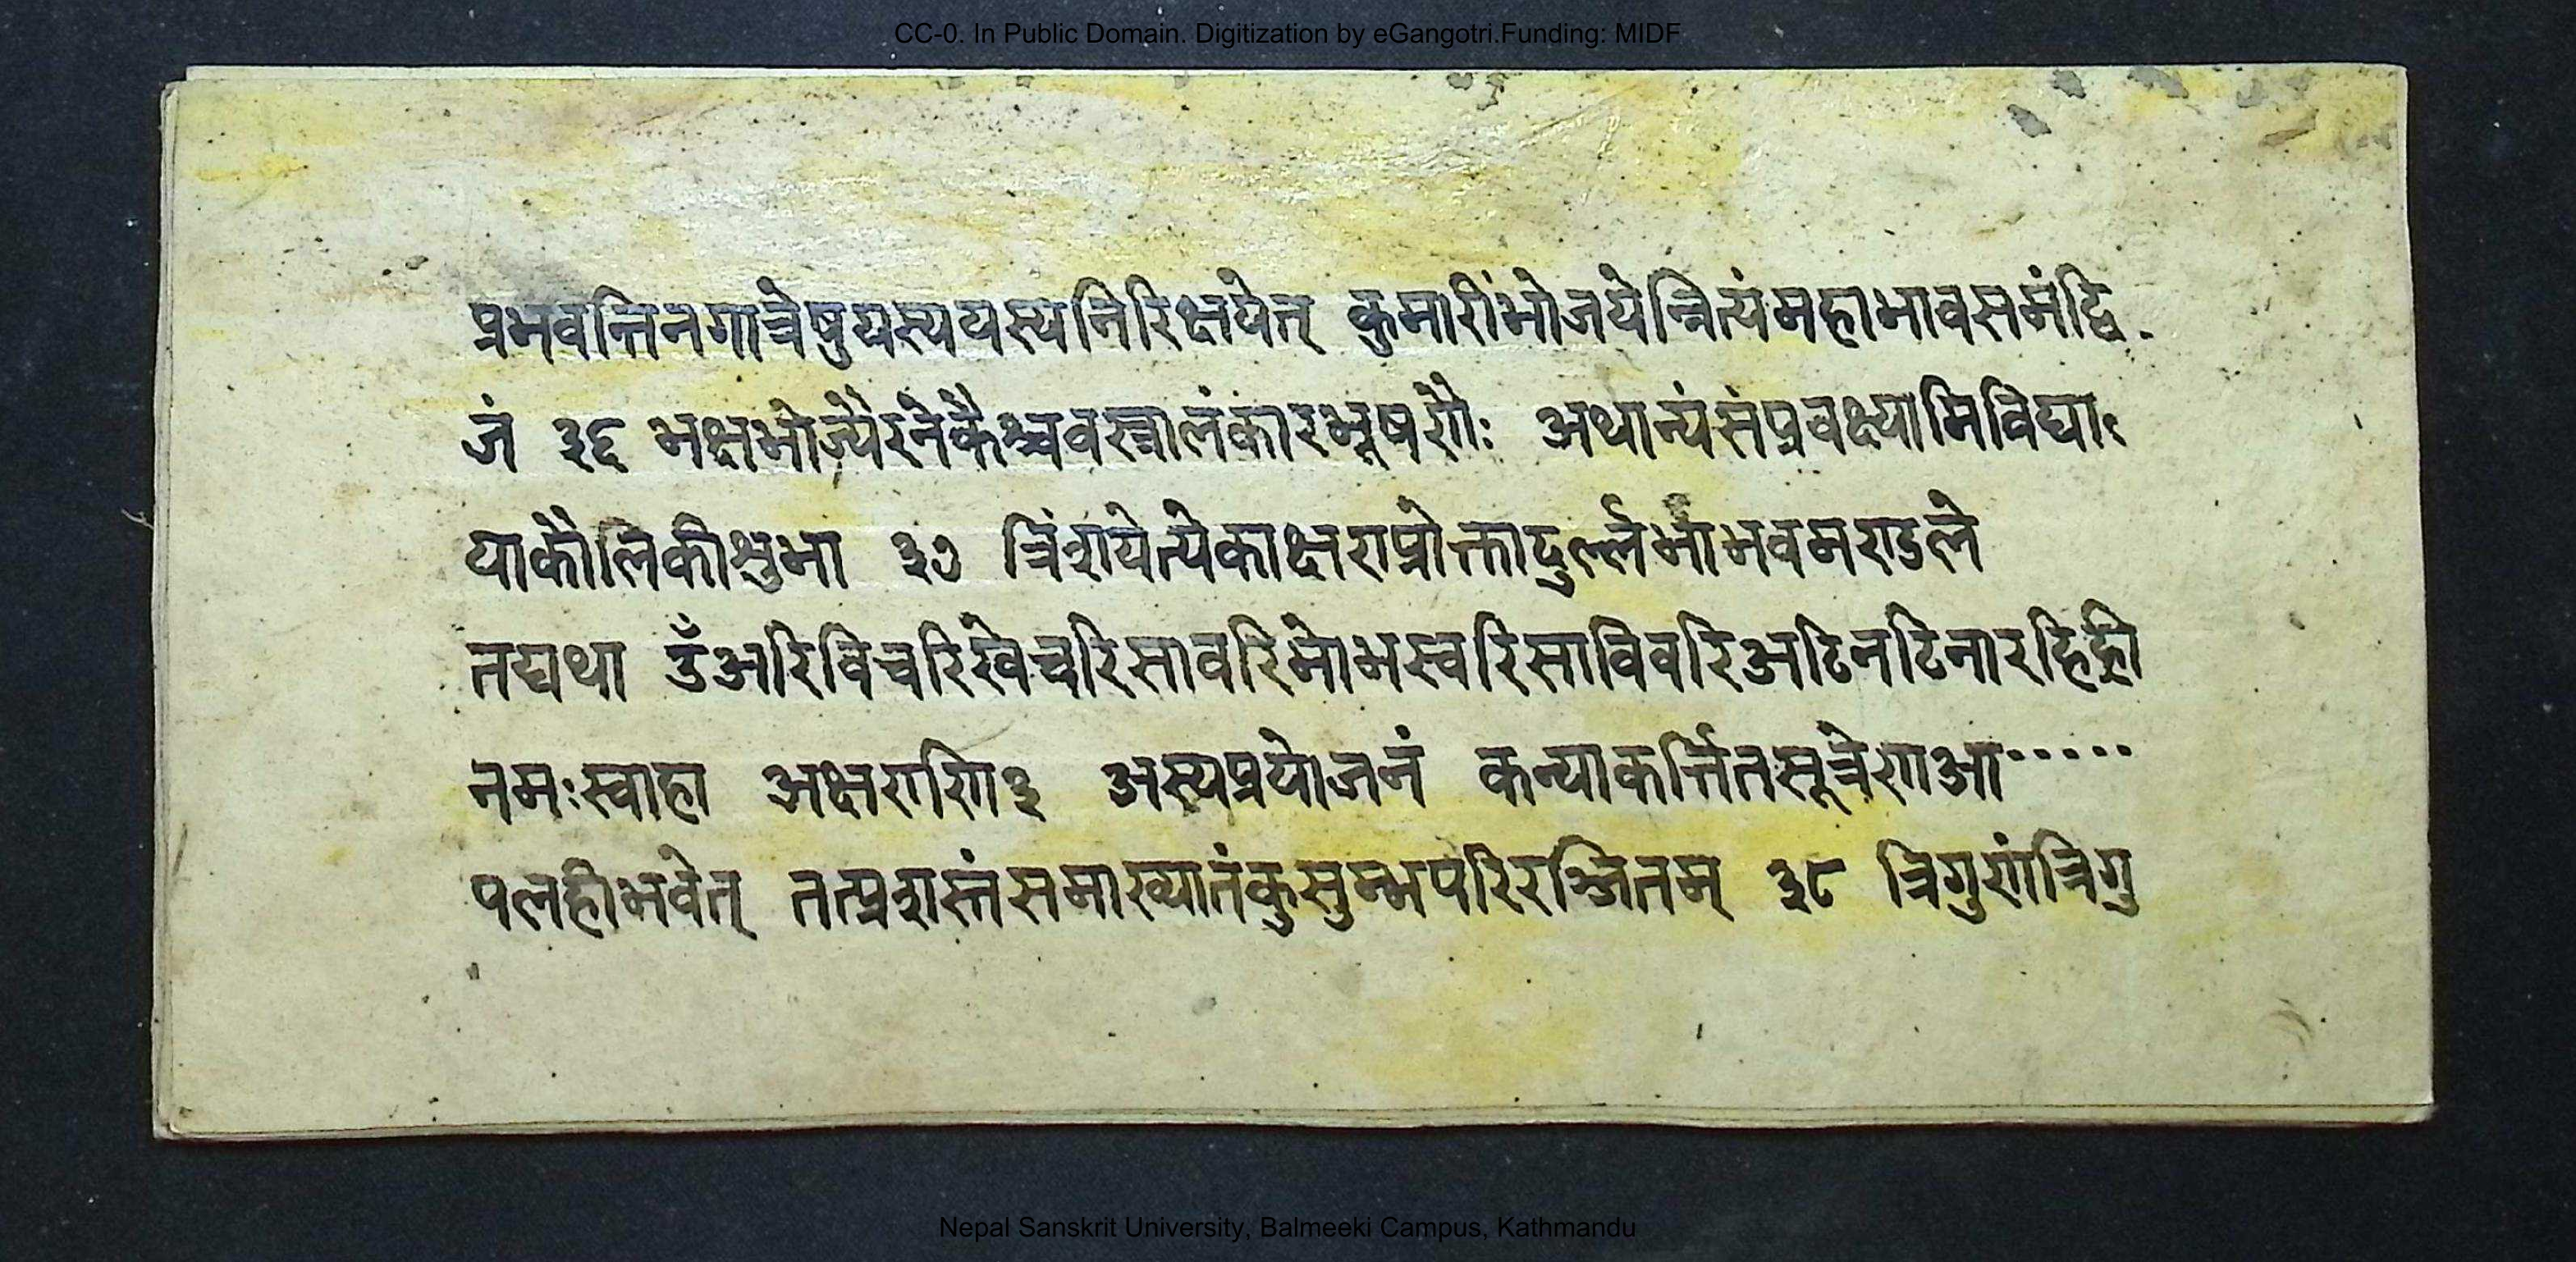 CC-0. In Public Domain. Digitization by eGangotri.Funding: MIDF
प्रभवन्तिनगात्रेषुयस्ययस्यनिरिक्षयेत् कुमारींभोजयेन्नित्यंमहाभावसमंद्वि.
जं ३६ भक्षभोज्यैरनेकैश्चवस्त्रालंकारभूषणैः अथान्यंसंप्रवक्ष्यामिविद्या
याकौलिकीशुभा ३७ त्रिंशयेत्येकाक्षराप्रोक्तादुर्ल्लभाभवमण्डले
तद्यथा उँअरिविचरिखेचरिसावरिभोभस्वरिसाविवरिअटिनटिनारहिह्री
नमःस्वाहा अक्षराणि३ अस्यप्रयोजनं कन्याकर्त्तितसूत्रेणआ·····
पलहीभवेत् तत्प्रशस्तंसमाख्यातंकुसुम्भपरिरञ्जितम् ३८ त्रिगुणंत्रिगु
Nepal Sanskrit University, Balmeeki Campus, Kathmandu